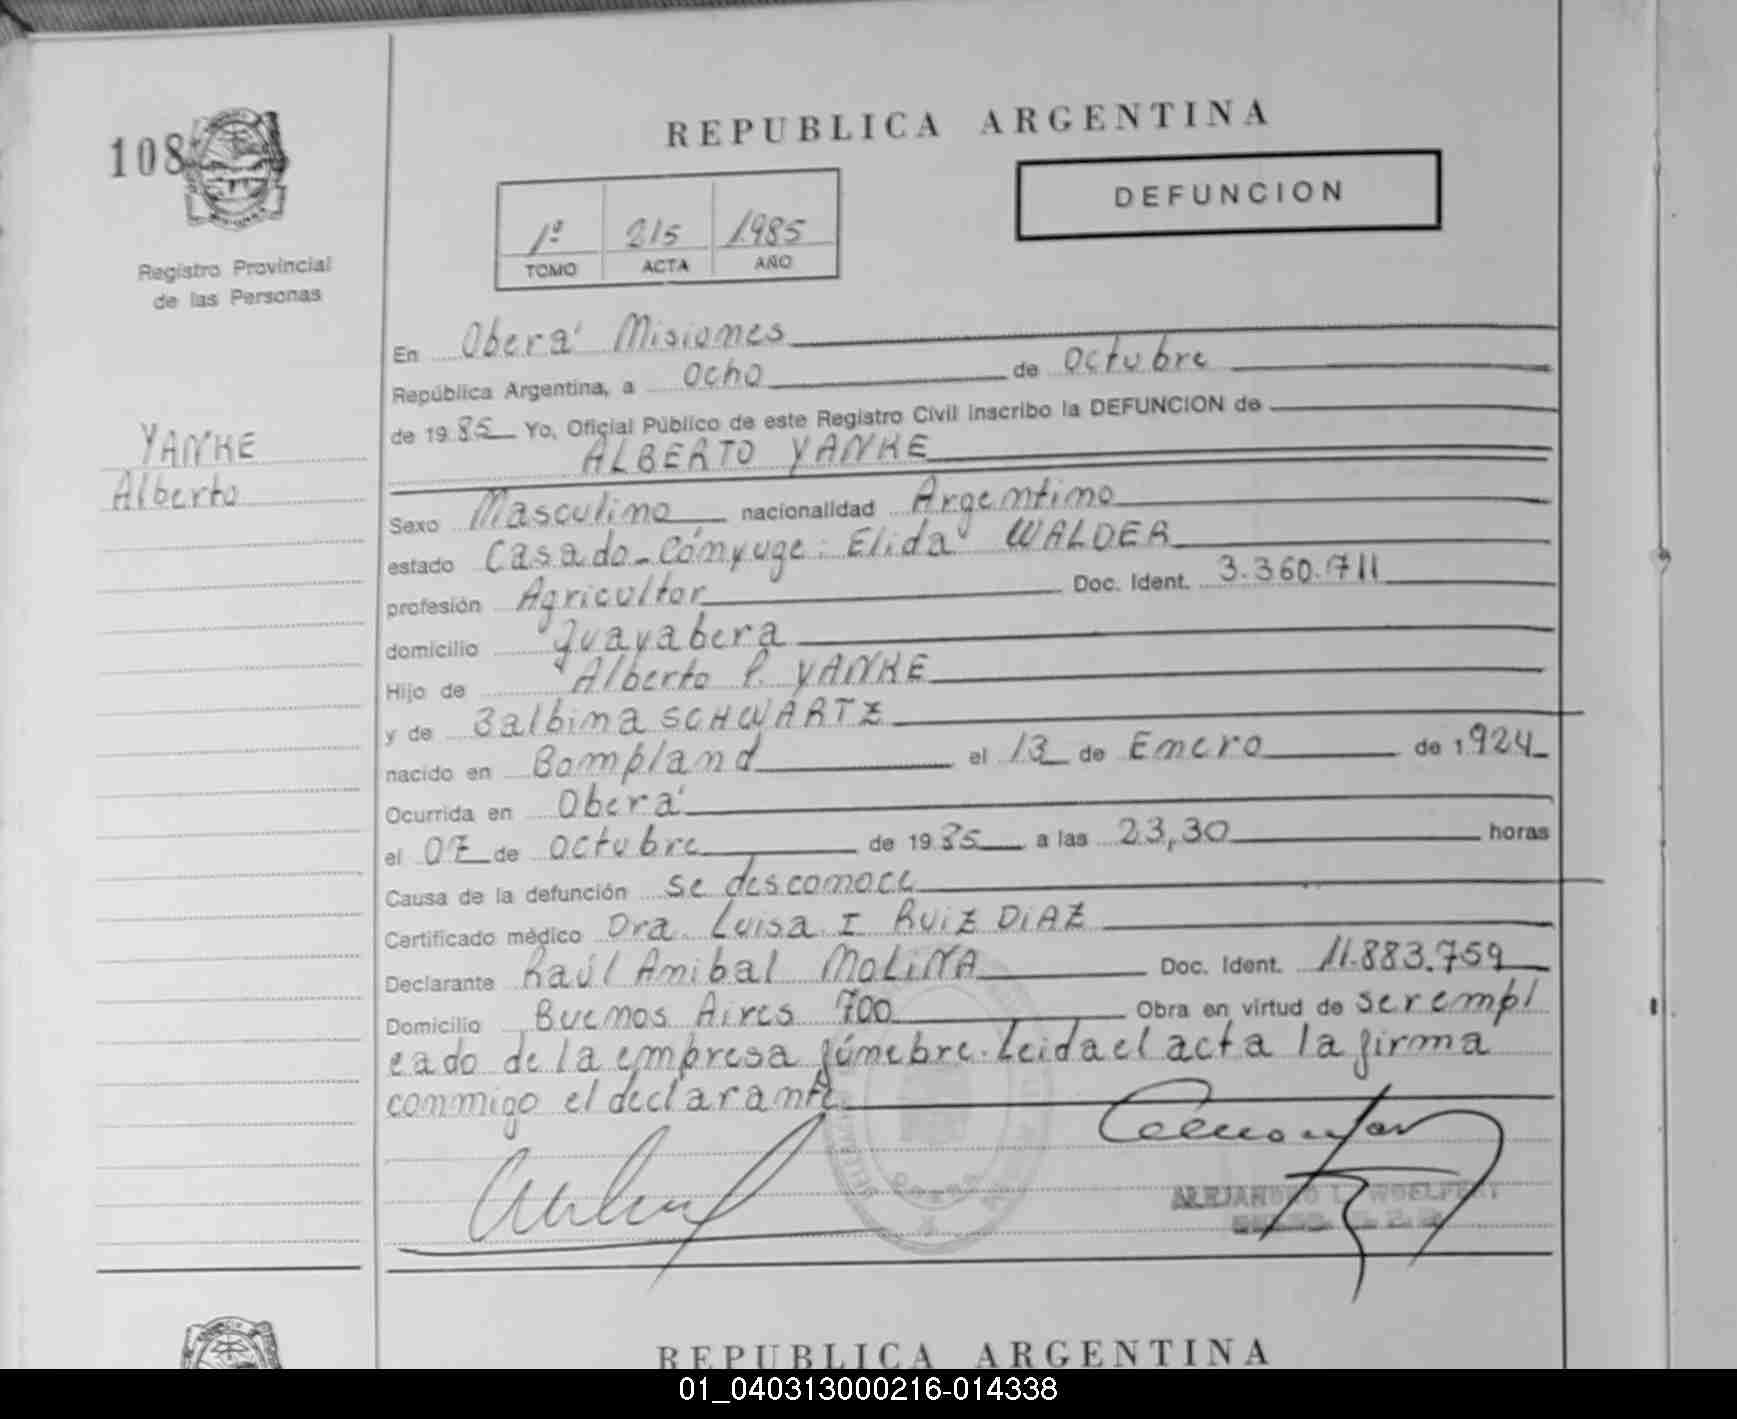 108
Registro Provincial
de las Personas
YANKE
Alberto
REPUBLICA ARGENTINA
DEFUNCION
1º 215 1985
TOMO ACTA AÑO
En Oberá Misiones
República Argentina, a ocho de octubre
de 1985 Yo, Oficial Público de este Registro Civil inscribo la DEFUNCION de
ALBERTO YANKE
Sexo Masculino nacionalidad Argentino
estado Casado-Cónyuge: Elida WALDER
profesión Agricultor Doc. Ident. 3.360.711
domicilio Guayabera
Hijo de Alberto P. YANKE
y de Balbina SCHWARTZ
nacido en Bompland el 13 de Enero de 1.924
Ocurrida en Oberá
el 07 de octubre de 1985 a las 23,30 horas
Causa de la defunción se desconoce
Certificado médico Dra. Luisa I RUIZ DIAZ
Declarante Raúl Anibal MOLINA Doc. Ident. 11.883.759
Domicilio Buenos Aires 700 Obra en virtud de ser empl
eado de la empresa fúnebre. Leida el acta la firma
conmigo el declarante
REPUBLICA ARGENTINA
01_040313000216-014338